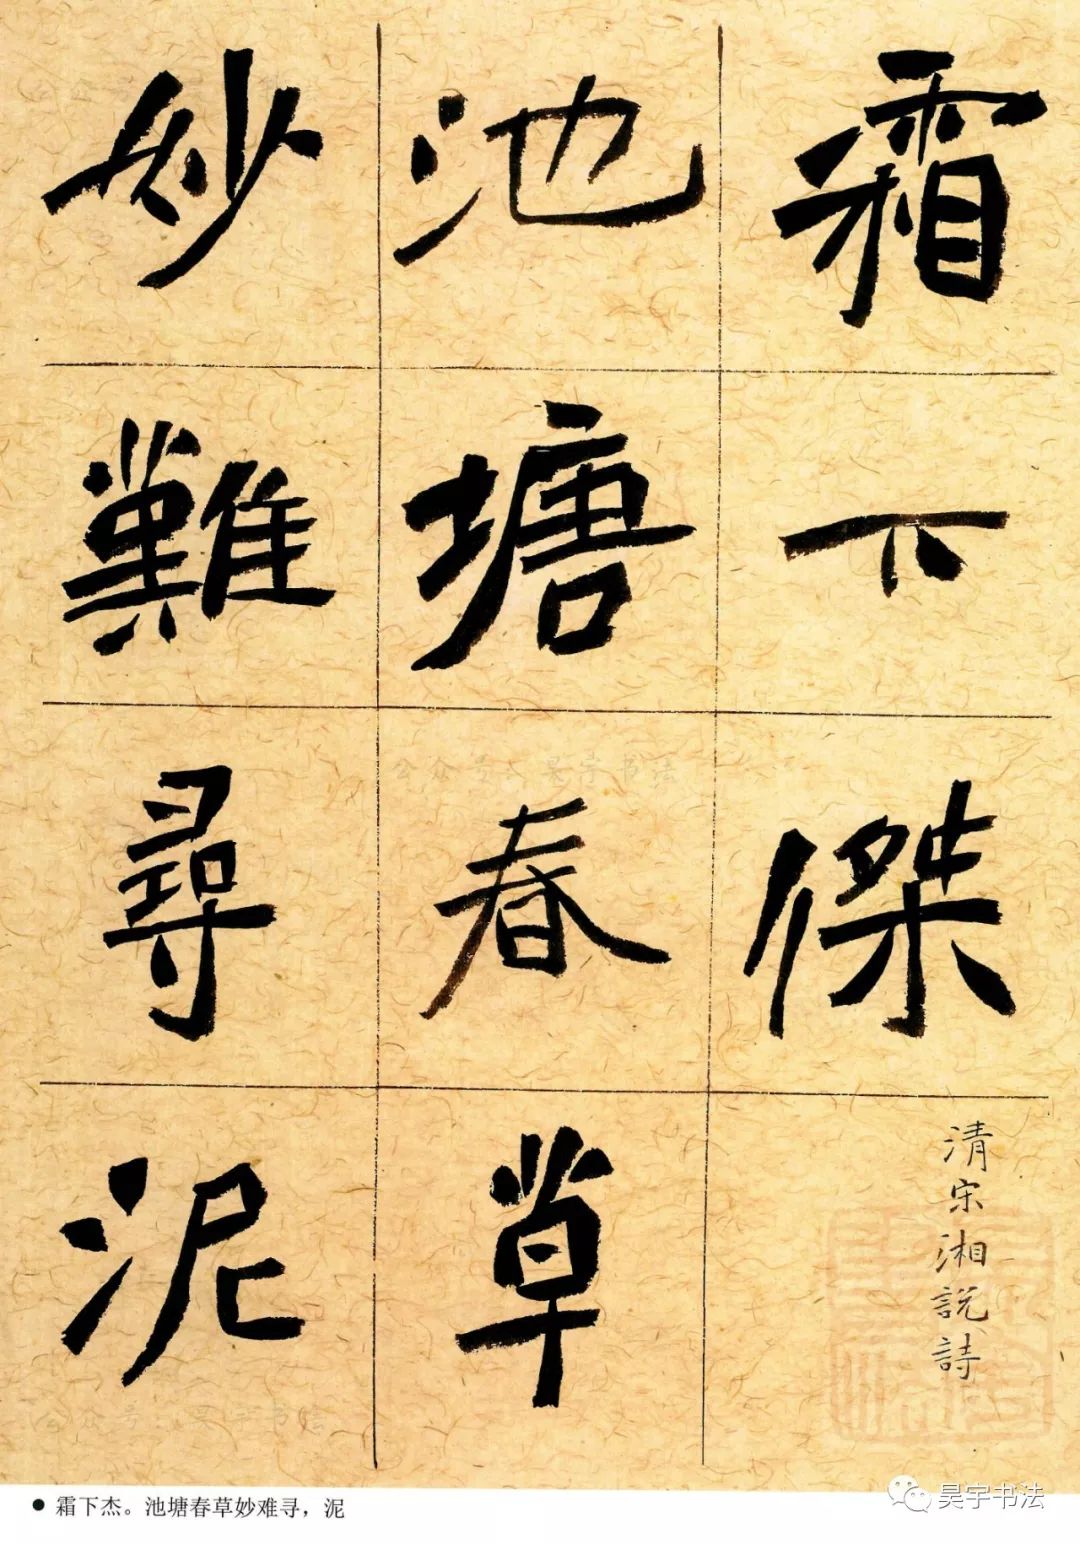 霜下傑
清宋湘說詩
池塘春草
妙難尋泥
公众号：昊宇书法
公众号：昊宇书法
● 霜下杰。池塘春草妙难寻，泥
昊宇书法